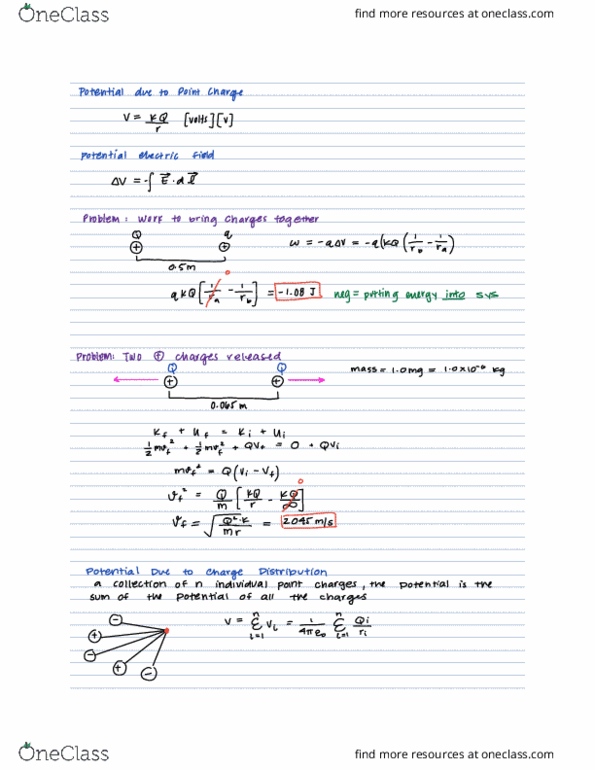 OneClass find more resources at oneclass.com
Potential due to Point Charge
V = kQ/r [volts][V]
Potential electric field
ΔV = -∫ E⃗ · d l⃗
Problem: Work to bring charges together
Q q
+ +
0.5m
W = -qΔV = -q(kQ(1/r_b - 1/r_a)
0
qkQ[1/r_a - 1/r_b] = -1.08 J neg = putting energy into sys
Problem: Two ⊕ charges released
Q Q
+ +
mass = 1.0mg = 1.0x10⁻⁶ kg
0.065m
K_f + U_f = K_i + U_i
1/2 mv_f² + 1/2 mv_f² + QV_f = 0 + QV_i
mv_f² = Q(V_i - V_f)
0
v_f² = Q/m [kQ/r - kQ/∞]
v_f = √(Q²·k/mr) = 2045 m/s
Potential Due to Charge Distribution
a collection of n individual point charges, the potential is the
sum of the potential of all the charges
V = Σ_{i=1}^{n} V_i = 1/4πe₀ Σ_{i=1}^{n} Q_i/r_i
−
+
−
+
−
OneClass find more resources at oneclass.com